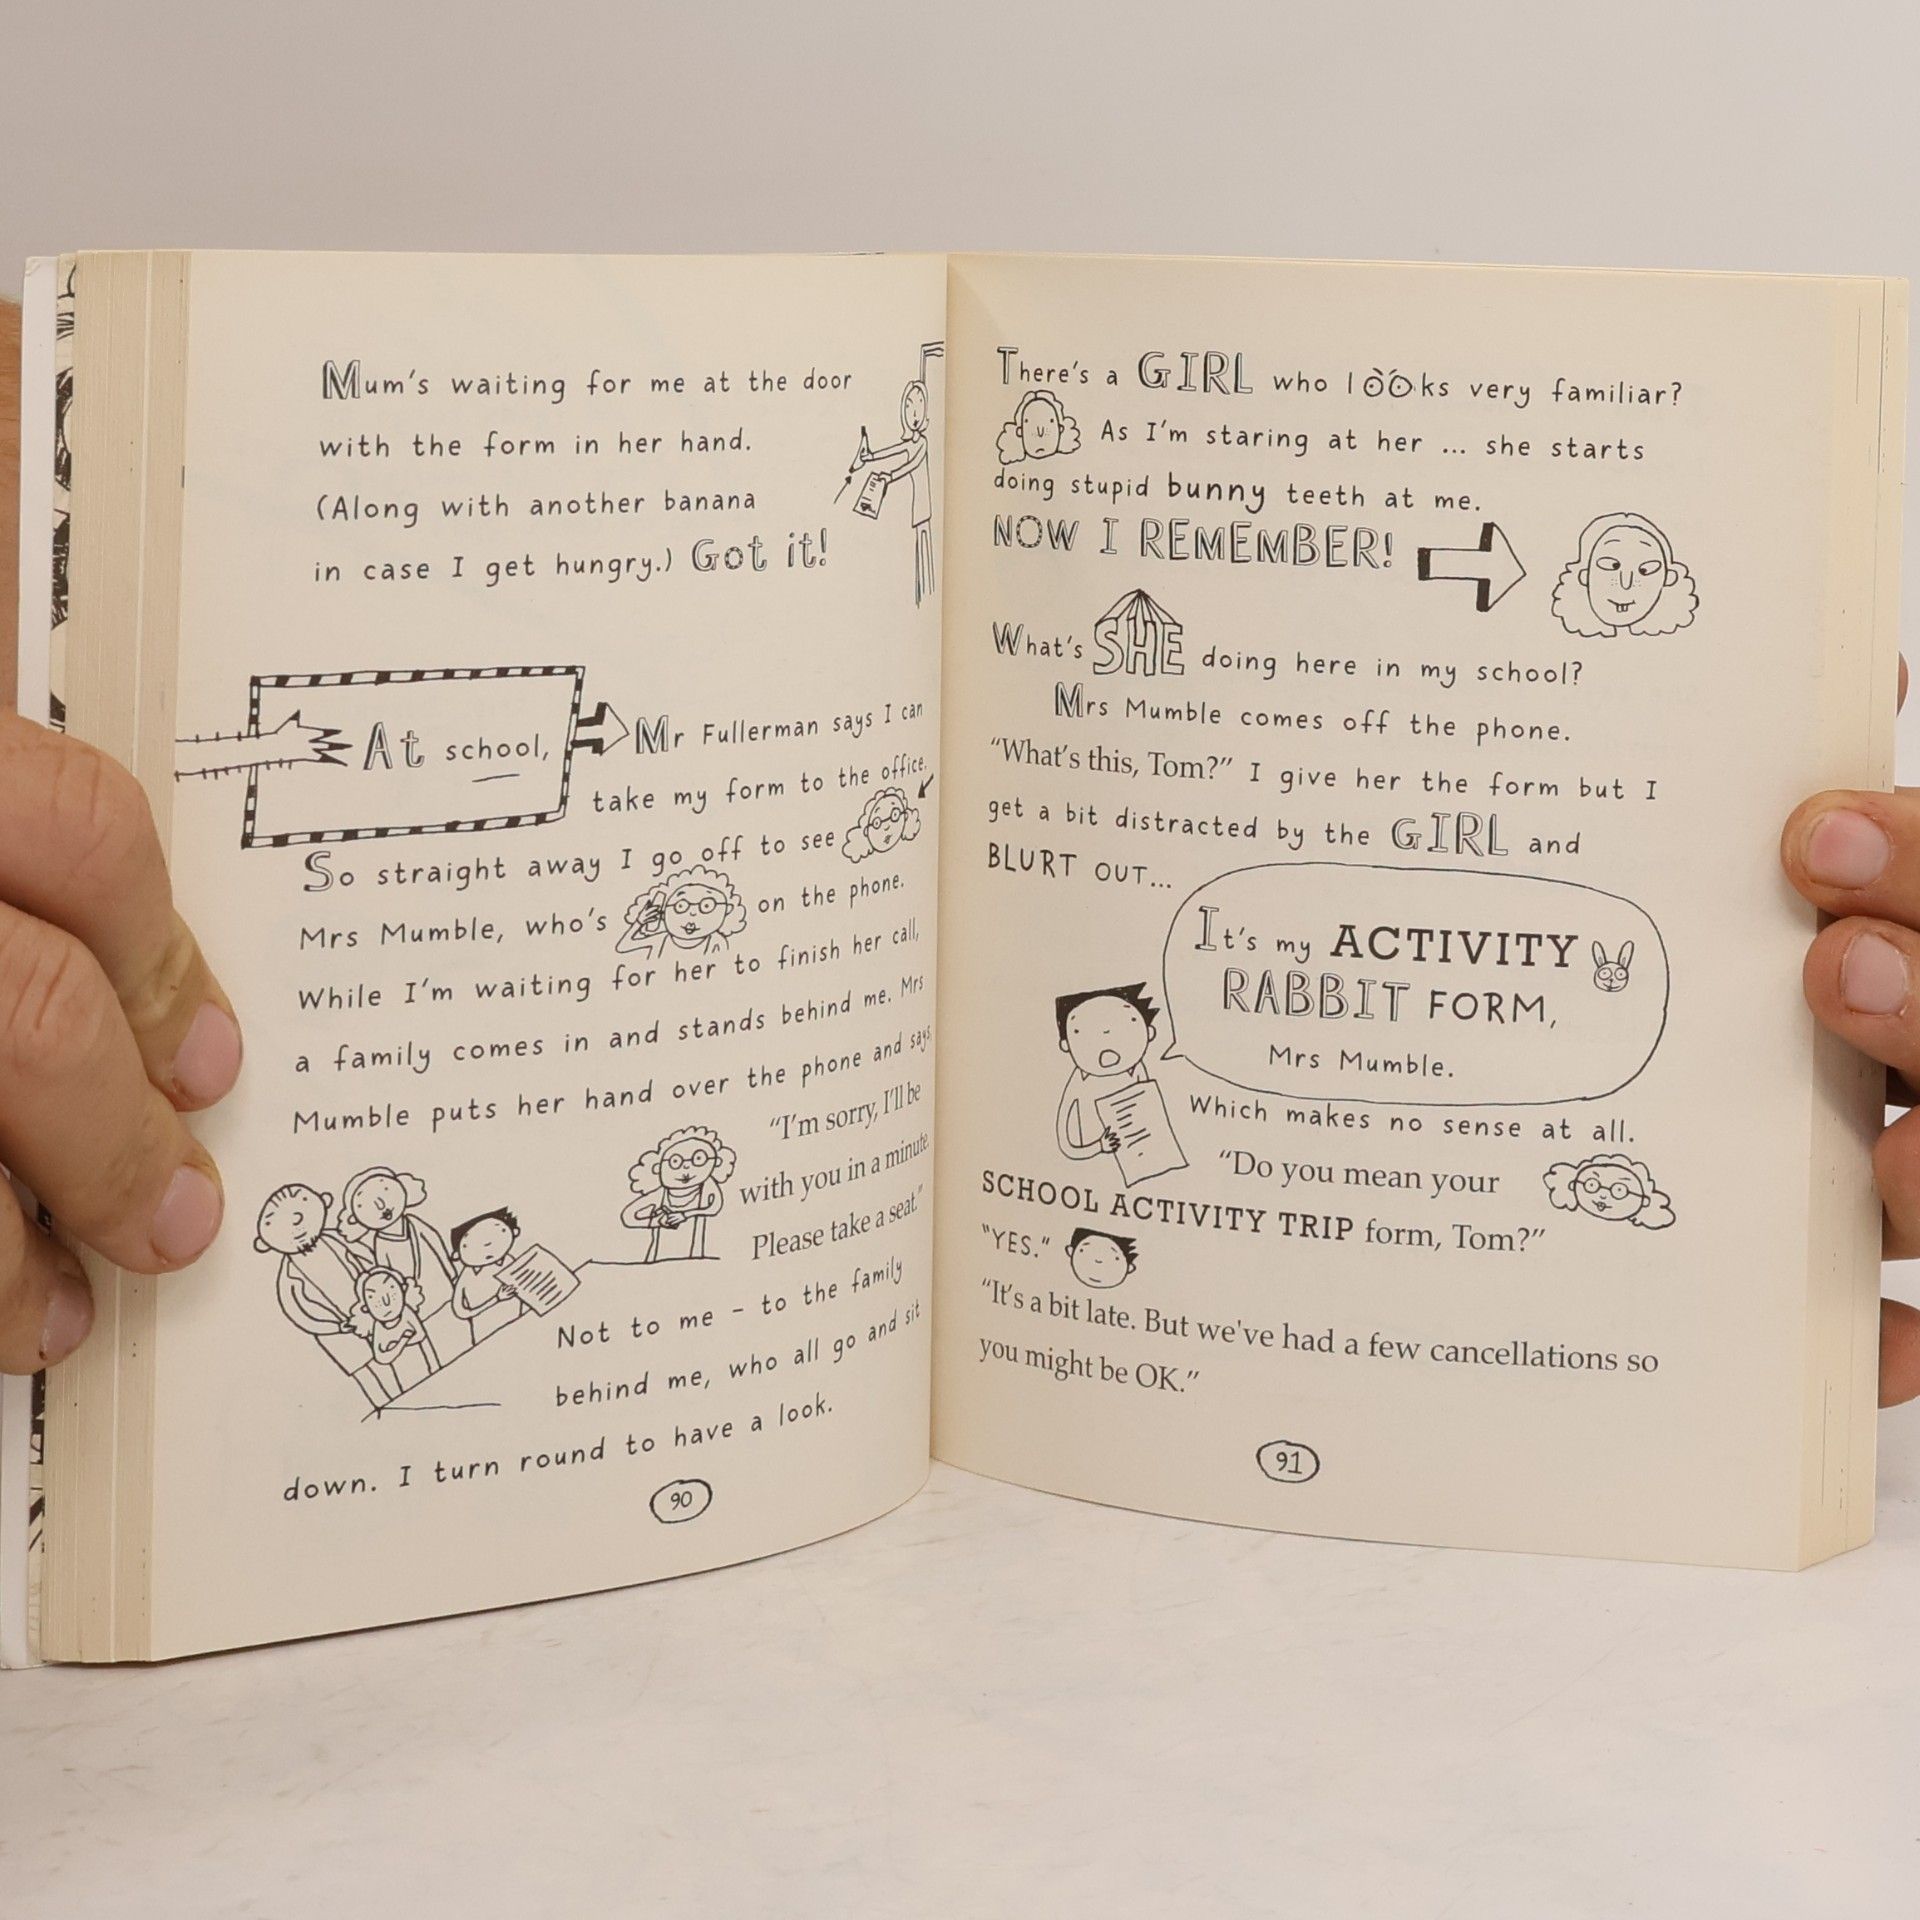 Mum's waiting for me at the door
with the form in her hand.
(Along with another banana
in case I get hungry.) Got it!
At school,
Mr Fullerman says I can
take my form to the office.
So straight away I go off to see
Mrs Mumble, who's on the phone.
While I'm waiting for her to finish her call,
a family comes in and stands behind me. Mrs
Mumble puts her hand over the phone and says,
"I'm sorry, I'll be
with you in a minute.
Please take a seat."
Not to me – to the family
behind me, who all go and sit
down. I turn round to have a look.
90
There's a GIRL who looks very familiar?
As I'm staring at her ... she starts
doing stupid bunny teeth at me.
NOW I REMEMBER!
What's SHE doing here in my school?
Mrs Mumble comes off the phone.
"What's this, Tom?" I give her the form but I
get a bit distracted by the GIRL and
BLURT OUT...
It's my ACTIVITY
RABBIT FORM,
Mrs Mumble.
Which makes no sense at all.
"Do you mean your
SCHOOL ACTIVITY TRIP form, Tom?"
"YES."
"It's a bit late. But we've had a few cancellations so
you might be OK."
91